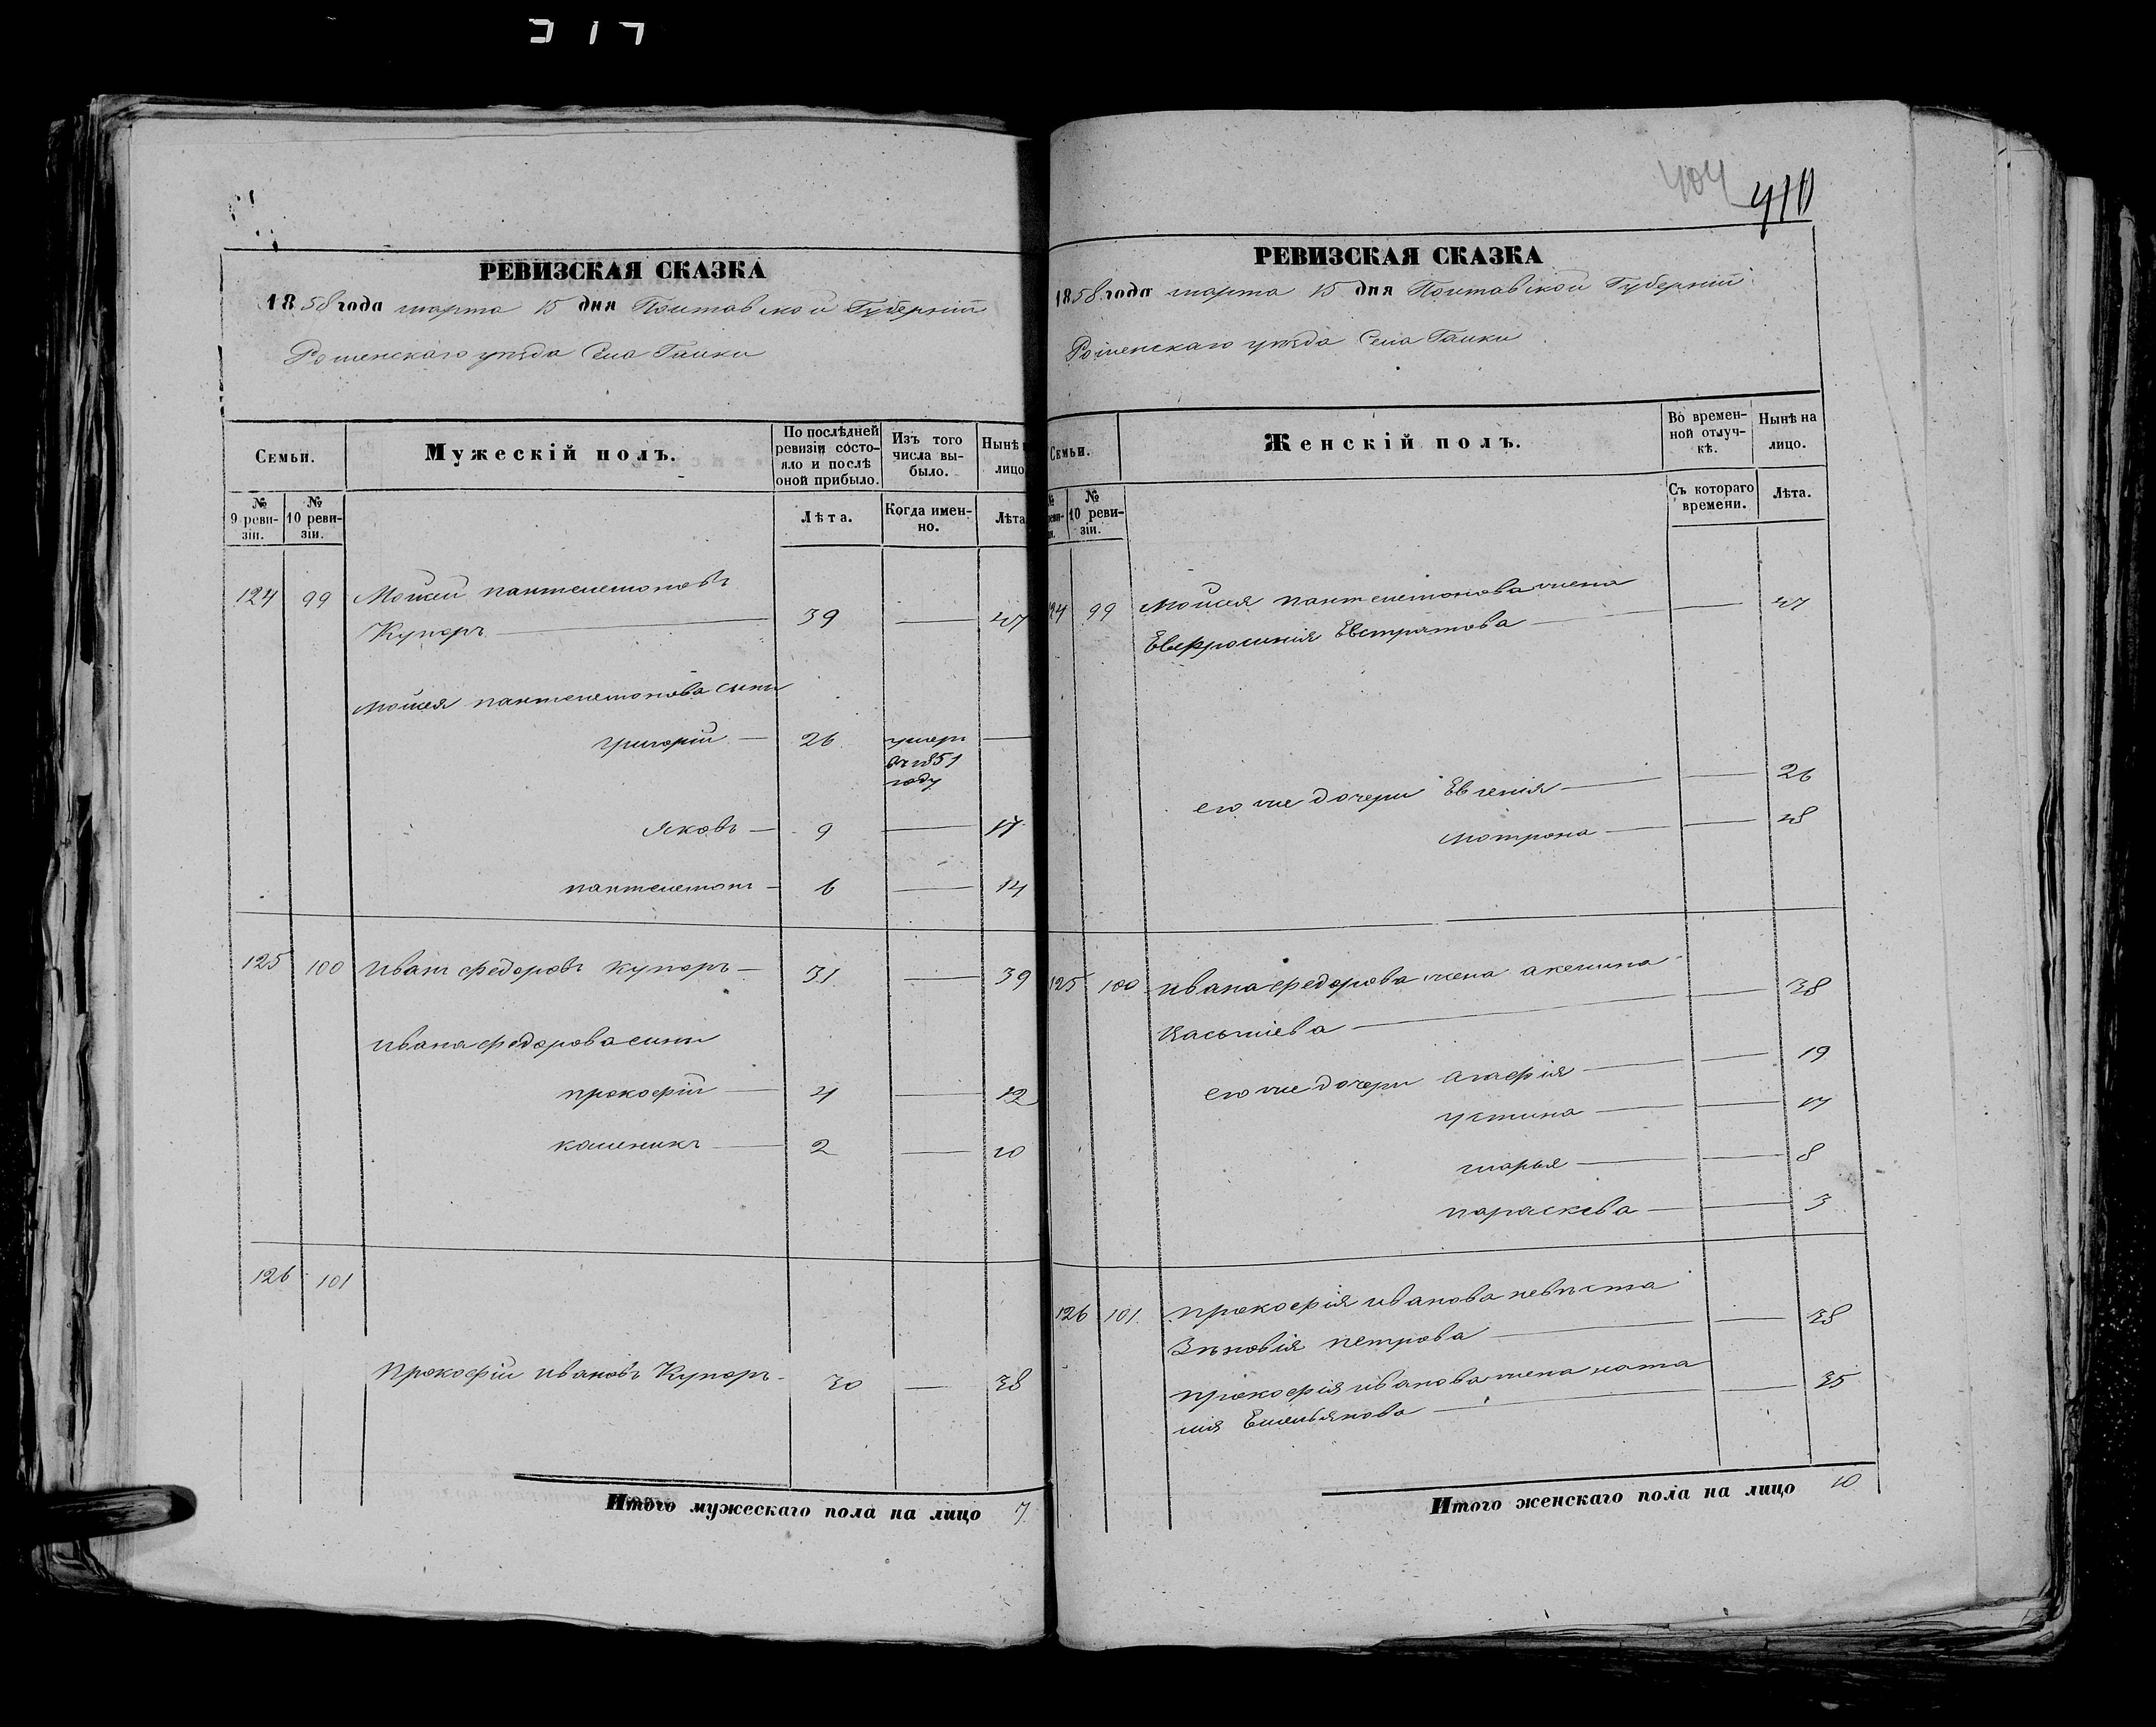 404 410
РЕВИЗСКАЯ СКАЗКА
1858 года марта 15 дня Полтавской Губерніи
Роменскаго уѣзда Села Галки
Семьи.
Мужескій полъ.
По послѣдней ревизіи состояло и послѣ оной прибыло.
Изъ того числа выбыло.
Нынѣ
лицо
№ 9 ревизіи.
№ 10 ревизіи.
Лѣта.
Когда именно.
Лѣта
124 99 Мойсей пантелемоновъ
Куперъ 39 — 47
Мойсея пантелемонова сыны
григорій — 26 умеръ —
въ 1851
году
Яковъ — 9 — 17
пантелемонъ — 6 — 14
125 100 Иванъ федоровъ куперъ — 31 — 39
Ивана федорова сыны
прокофій — 4 — 12
калиникъ — 2 — 10
126 101
Прокофій ивановъ Куперъ 30 — 38
Итого мужескаго пола на лицо 7
РЕВИЗСКАЯ СКАЗКА
1858 года марта 15 дня Полтавской Губерніи
Роменскаго уѣзда Села Галки
Семьи.
Женскій полъ.
Во временной отлучкѣ.
Нынѣ на лицо.
№ 10 ревизіи.
Съ котораго времени.
Лѣта.
124 99 Мойсея пантелемонова жена
Евфросинія Евстратова — — 47
его же дочери Евгенія — — 26
мотрона — — 18
125 100 Ивана федорова жена акелина
Касьянова — — 38
его же дочери агафія — — 19
устина — — 17
марья — — 8
параскева — — 3
126 101 прокофія иванова невѣста
Зѣновія петрова — — 38
прокофія иванова жена ната
лія Емельянова — — 35
Итого женскаго пола на лицо 10